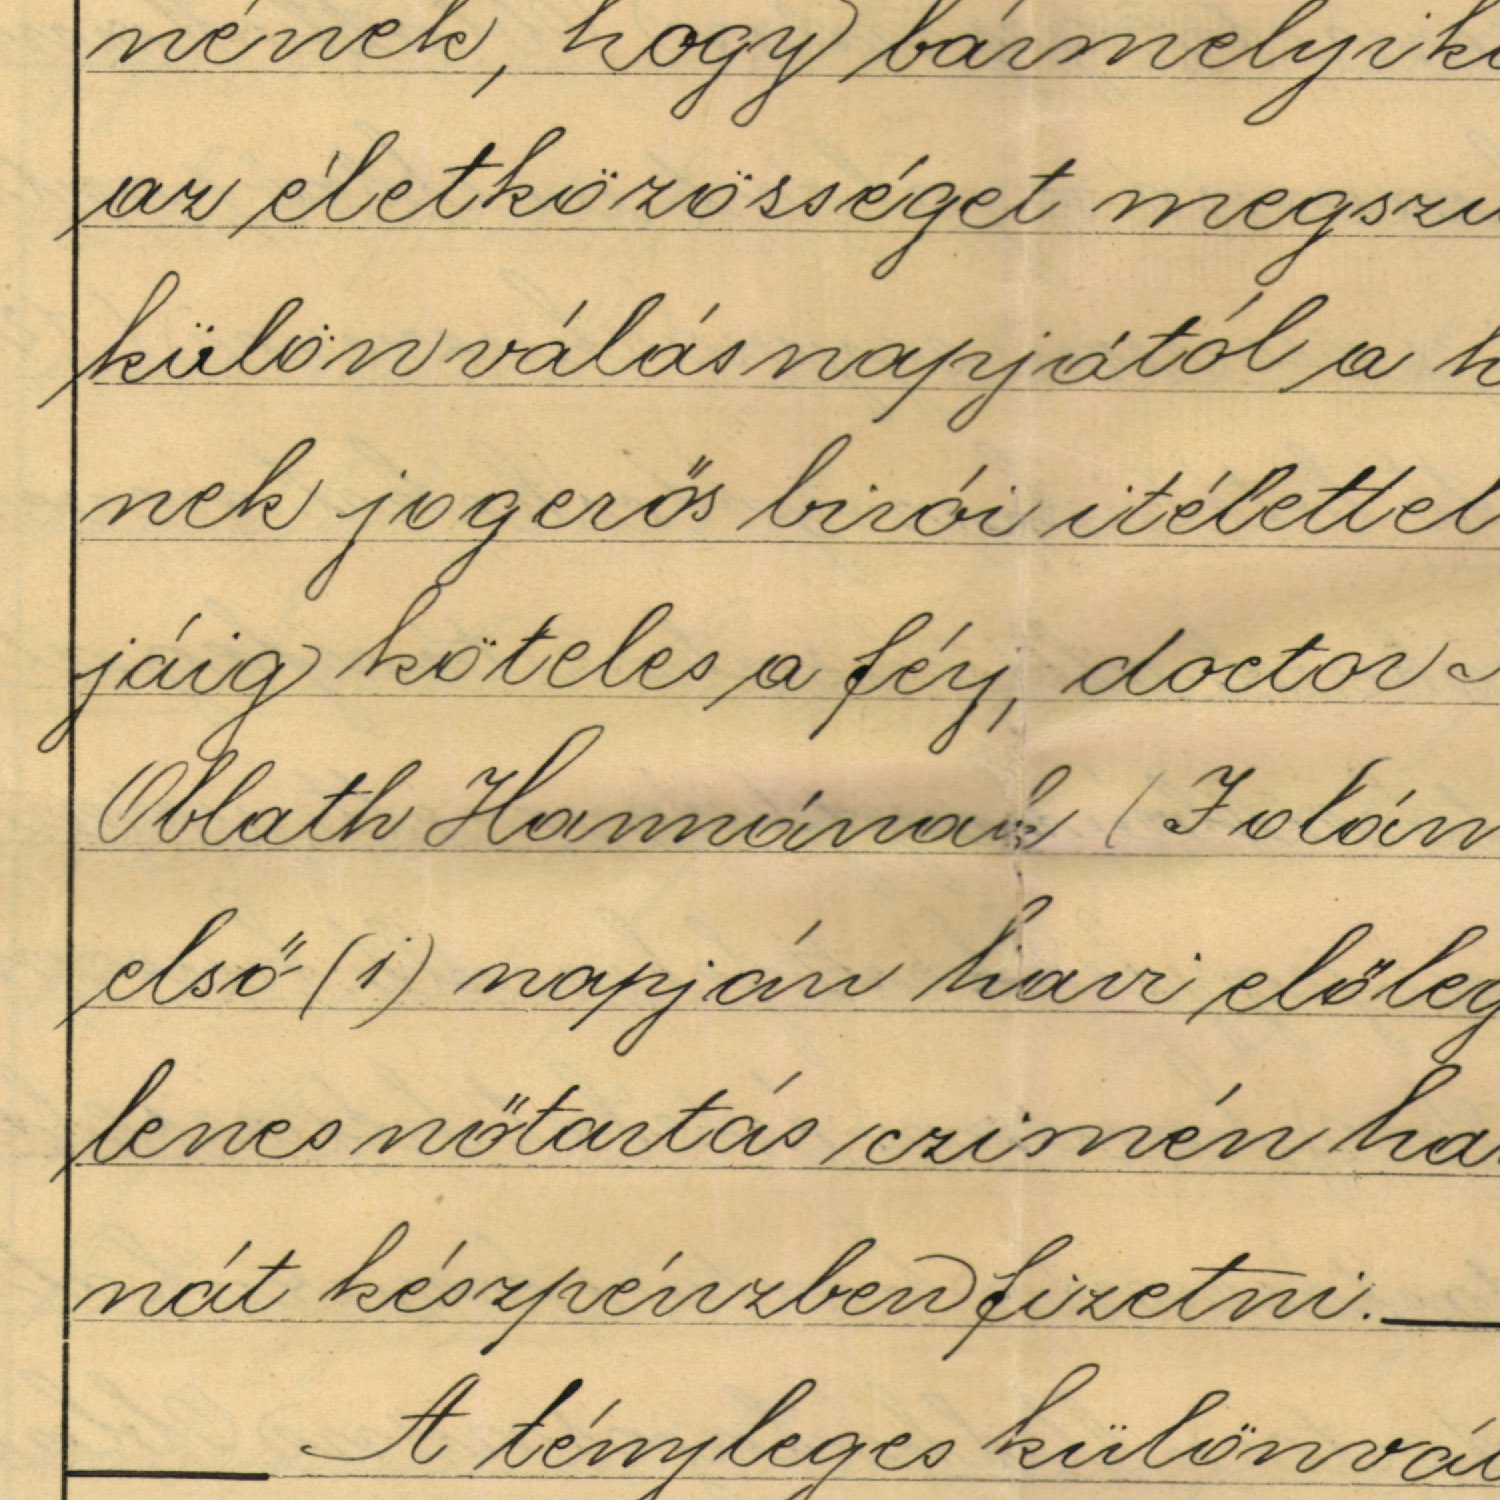 nének, hogy bármelyik
az életközösséget megszu
különválás napjától a h
nek jogerős birói itélettel
jáig köteles a férj, doctor
Oblath Hannának (Jolán
első (i) napján havi előleg
lenes nőtartás czimén ha
nát készpénzben fizetni.
A tényleges különvál